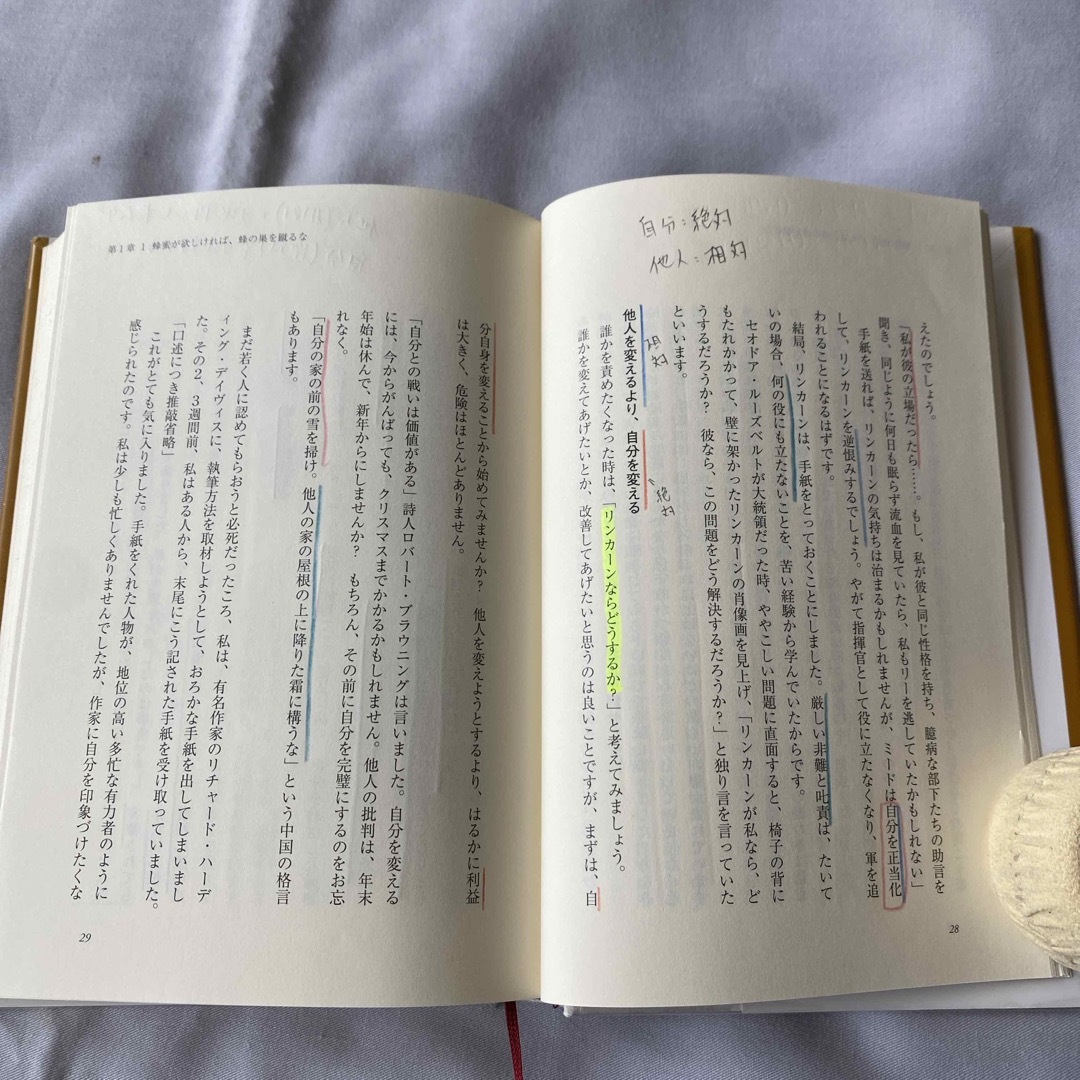 自分：絶対
他人：相対
えたのでしょう。
「私が彼の立場だったら……。もし、私が彼と同じ性格を持ち、臆病な部下たちの助言を
聞き、同じように何日も眠らず流血を見ていたら、私もリーを逃していたかもしれない」
手紙を送れば、リンカーンの気持ちは治まるかもしれませんが、ミードは自分を正当化
して、リンカーンを逆恨みするでしょう。やがて指揮官として役に立たなくなり、軍を追
われることになるはずです。
結局、リンカーンは、手紙をとっておくことにしました。厳しい非難と叱責は、たいて
いの場合、何の役にも立たないことを、苦い経験から学んでいたからです。
セオドア・ルーズベルトが大統領だった時、ややこしい問題に直面すると、椅子の背に
もたれかかって、壁に架かったリンカーンの肖像画を見上げ、「リンカーンが私なら、ど
うするだろうか？　彼なら、この問題をどう解決するだろうか？」と独り言を言っていた
といいます。
他人を変えるより、自分を変える
相対
絶対
誰かを責めたくなった時は、「リンカーンならどうするか？」と考えてみましょう。
誰かを変えてあげたいとか、改善してあげたいと思うのは良いことですが、まずは、自
28
第1章 1 蜂蜜が欲しければ、蜂の巣を蹴るな
分自身を変えることから始めてみませんか？　他人を変えようとするより、はるかに利益
は大きく、危険はほとんどありません。
「自分との戦いは価値がある」詩人ロバート・ブラウニングは言いました。自分を変える
には、今からがんばっても、クリスマスまでかかるかもしれません。他人の批判は、年末
年始は休んで、新年からにしませんか？　もちろん、その前に自分を完璧にするのをお忘
れなく。
「自分の家の前の雪を掃け。他人の家の屋根の上に降りた霜に構うな」という中国の格言
もあります。
まだ若く人に認めてもらおうと必死だったころ、私は、有名作家のリチャード・ハーデ
ィング・デイヴィスに、執筆方法を取材しようとして、おろかな手紙を出してしまいまし
た。その2、3週間前、私はある人から、末尾にこう記された手紙を受け取っていました。
「口述につき推敲省略」
これがとても気に入りました。手紙をくれた人物が、地位の高い多忙な有力者のように
感じられたのです。私は少しも忙しくありませんでしたが、作家に自分を印象づけたくな
29